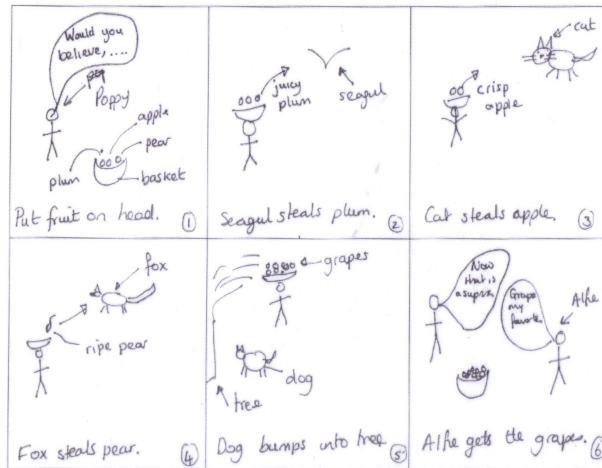 Would you
believe, ....
Poppy
apple
pear
plum
basket
Put fruit on head. ①
juicy
plum
seagul
Seagul steals plum. ②
cat
crisp
apple
Cat steals apple. ③
fox
ripe pear
Fox steals pear. ④
grapes
dog
tree
Dog bumps into tree ⑤
Now
that is
a
Grapes
my
favorite.
Alfie
Alfie gets the grapes. ⑥